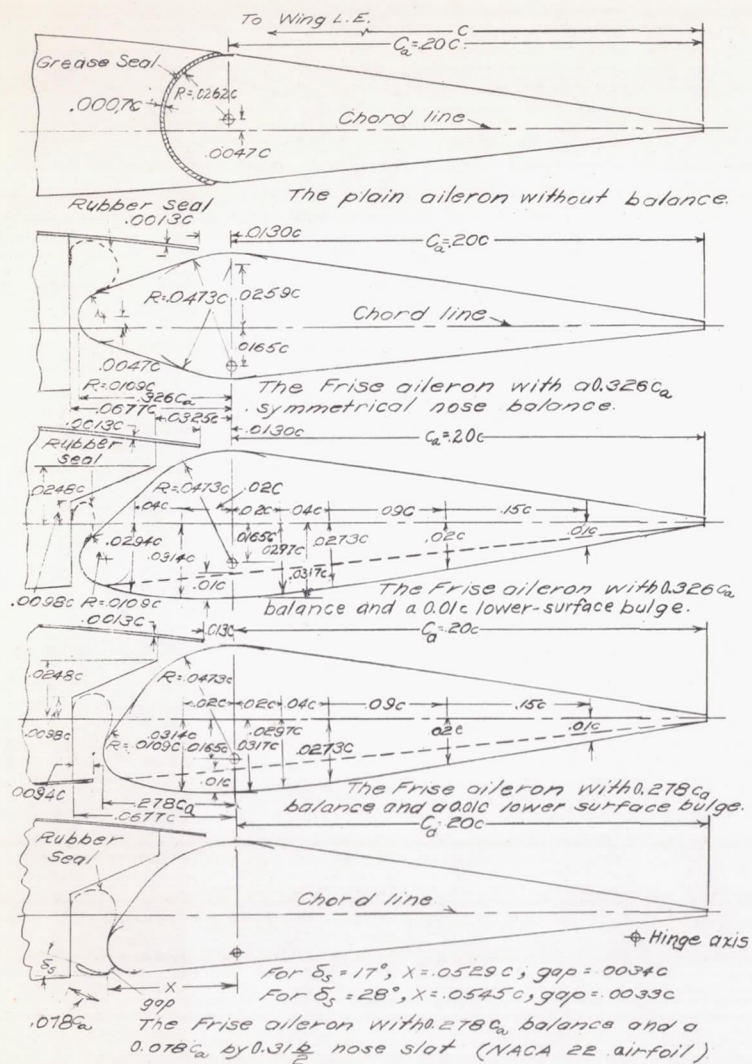 To Wing L.E.
C
Cₐ=.20C
Grease Seal
R=.0262c
.0007c
Chord line
.0047c
The plain aileron without balance.
Rubber seal
.0013c
.0130c
Cₐ=.20c
R=.0473c
.0259c
Chord line
.0165c
.0047c
R=.0109c
.326Cₐ
The Frise aileron with a 0.326cₐ
symmetrical nose balance.
.0677c
.0325c
.0013c
.0130c
Cₐ=.20c
Rubber
seal
R=.0473c
.02C
.0248c
.04c
.02c
.04c
.09c
.15c
.0294c
.0314c
.0165c
.0297c
.0273c
.02c
.01c
.01c
.0317c
.0098c
R=.0109c
The Frise aileron with 0.326cₐ
balance and a 0.01c lower-surface bulge.
.0013c
.013c
Cₐ=.20c
.0248c
R=.0473c
.02c
.02c
.04c
.09c
.15c
.0098c
.0314c
.0297c
.02c
.01c
R=.0109c
.0165c
.0317c
.0273c
.01c
.0094c
.278Cₐ
.0677c
The Frise aileron with 0.278cₐ
balance and a 0.01c lower surface bulge.
Cₐ=.20c
Rubber
Seal
Chord line
Hinge axis
δₛ
X
gap
.078cₐ
For δₛ = 17°, X = .0529c; gap = .0034c
For δₛ = 28°, X = .0545c; gap = .0033c
The Frise aileron with 0.278cₐ balance and a
0.078cₐ by 0.31 b/2 nose slat (NACA 22 airfoil)